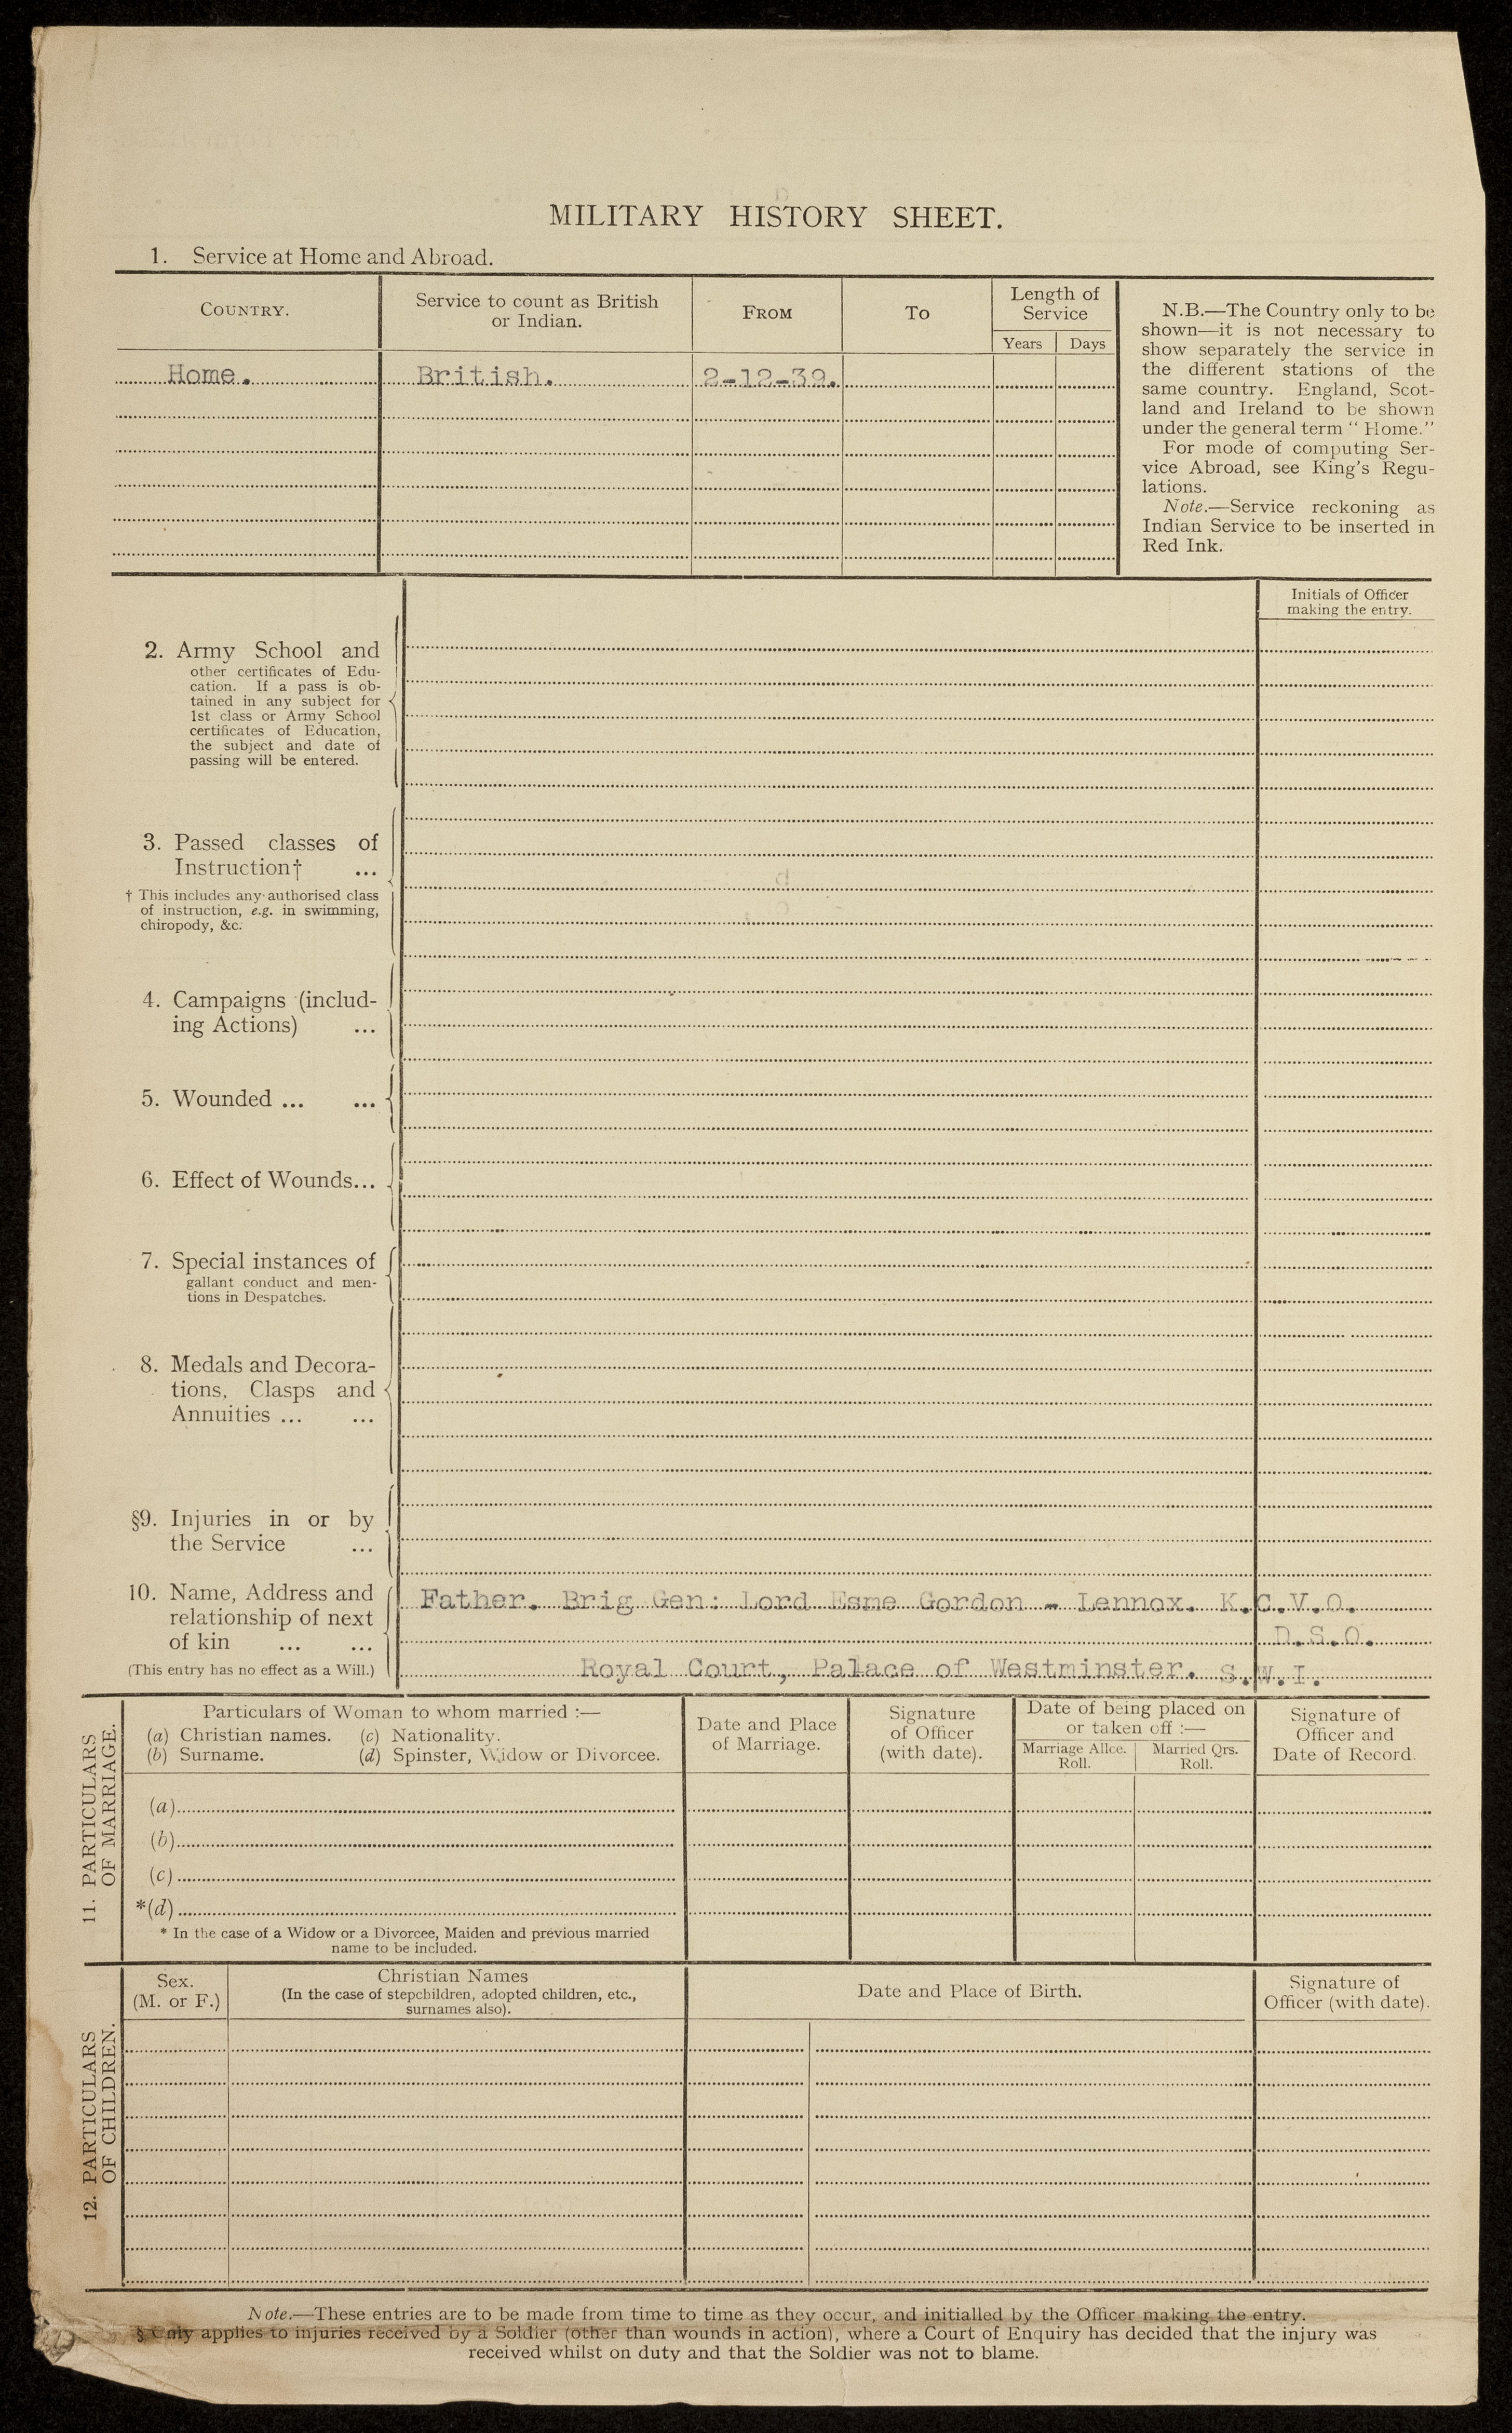 MILITARY HISTORY SHEET.
1. Service at Home and Abroad.
COUNTRY.
Service to count as British
or Indian.
FROM
TO
Length of
Service
Years
Days
Home.
British.
2-12-39.
N.B.—The Country only to be
shown—it is not necessary to
show separately the service in
the different stations of the
same country. England, Scot-
land and Ireland to be shown
under the general term “ Home.”
For mode of computing Ser-
vice Abroad, see King's Regu-
lations.
Note.—Service reckoning as
Indian Service to be inserted in
Red Ink.
Initials of Officer
making the entry.
2. Army School and
other certificates of Edu-
cation. If a pass is ob-
tained in any subject for
1st class or Army School
certificates of Education,
the subject and date of
passing will be entered.
3. Passed classes of
Instruction† ...
† This includes any authorised class
of instruction, e.g. in swimming,
chiropody, &c.
4. Campaigns (includ-
ing Actions) ...
5. Wounded ... ...
6. Effect of Wounds...
7. Special instances of
gallant conduct and men-
tions in Despatches.
8. Medals and Decora-
tions, Clasps and
Annuities ... ...
§9. Injuries in or by
the Service ...
10. Name, Address and
relationship of next
of kin ... ...
(This entry has no effect as a Will.)
Father. Brig Gen: Lord Esme Gordon - Lennox. K.C.V.O.
D.S.O.
Royal Court, Palace of Westminster. S.W.I.
11. PARTICULARS
OF MARRIAGE.
Particulars of Woman to whom married :—
(a) Christian names. (c) Nationality.
(b) Surname. (d) Spinster, Widow or Divorcee.
Date and Place
of Marriage.
Signature
of Officer
(with date).
Date of being placed on
or taken off :—
Marriage Allce.
Roll.
Married Qrs.
Roll.
Signature of
Officer and
Date of Record.
(a)
(b)
(c)
*(d)
* In the case of a Widow or a Divorcee, Maiden and previous married
name to be included.
12. PARTICULARS
OF CHILDREN.
Sex.
(M. or F.)
Christian Names
(In the case of stepchildren, adopted children, etc.,
surnames also).
Date and Place of Birth.
Signature of
Officer (with date).
Note.—These entries are to be made from time to time as they occur, and initialled by the Officer making the entry.
§ Only applies to injuries received by a Soldier (other than wounds in action), where a Court of Enquiry has decided that the injury was
received whilst on duty and that the Soldier was not to blame.